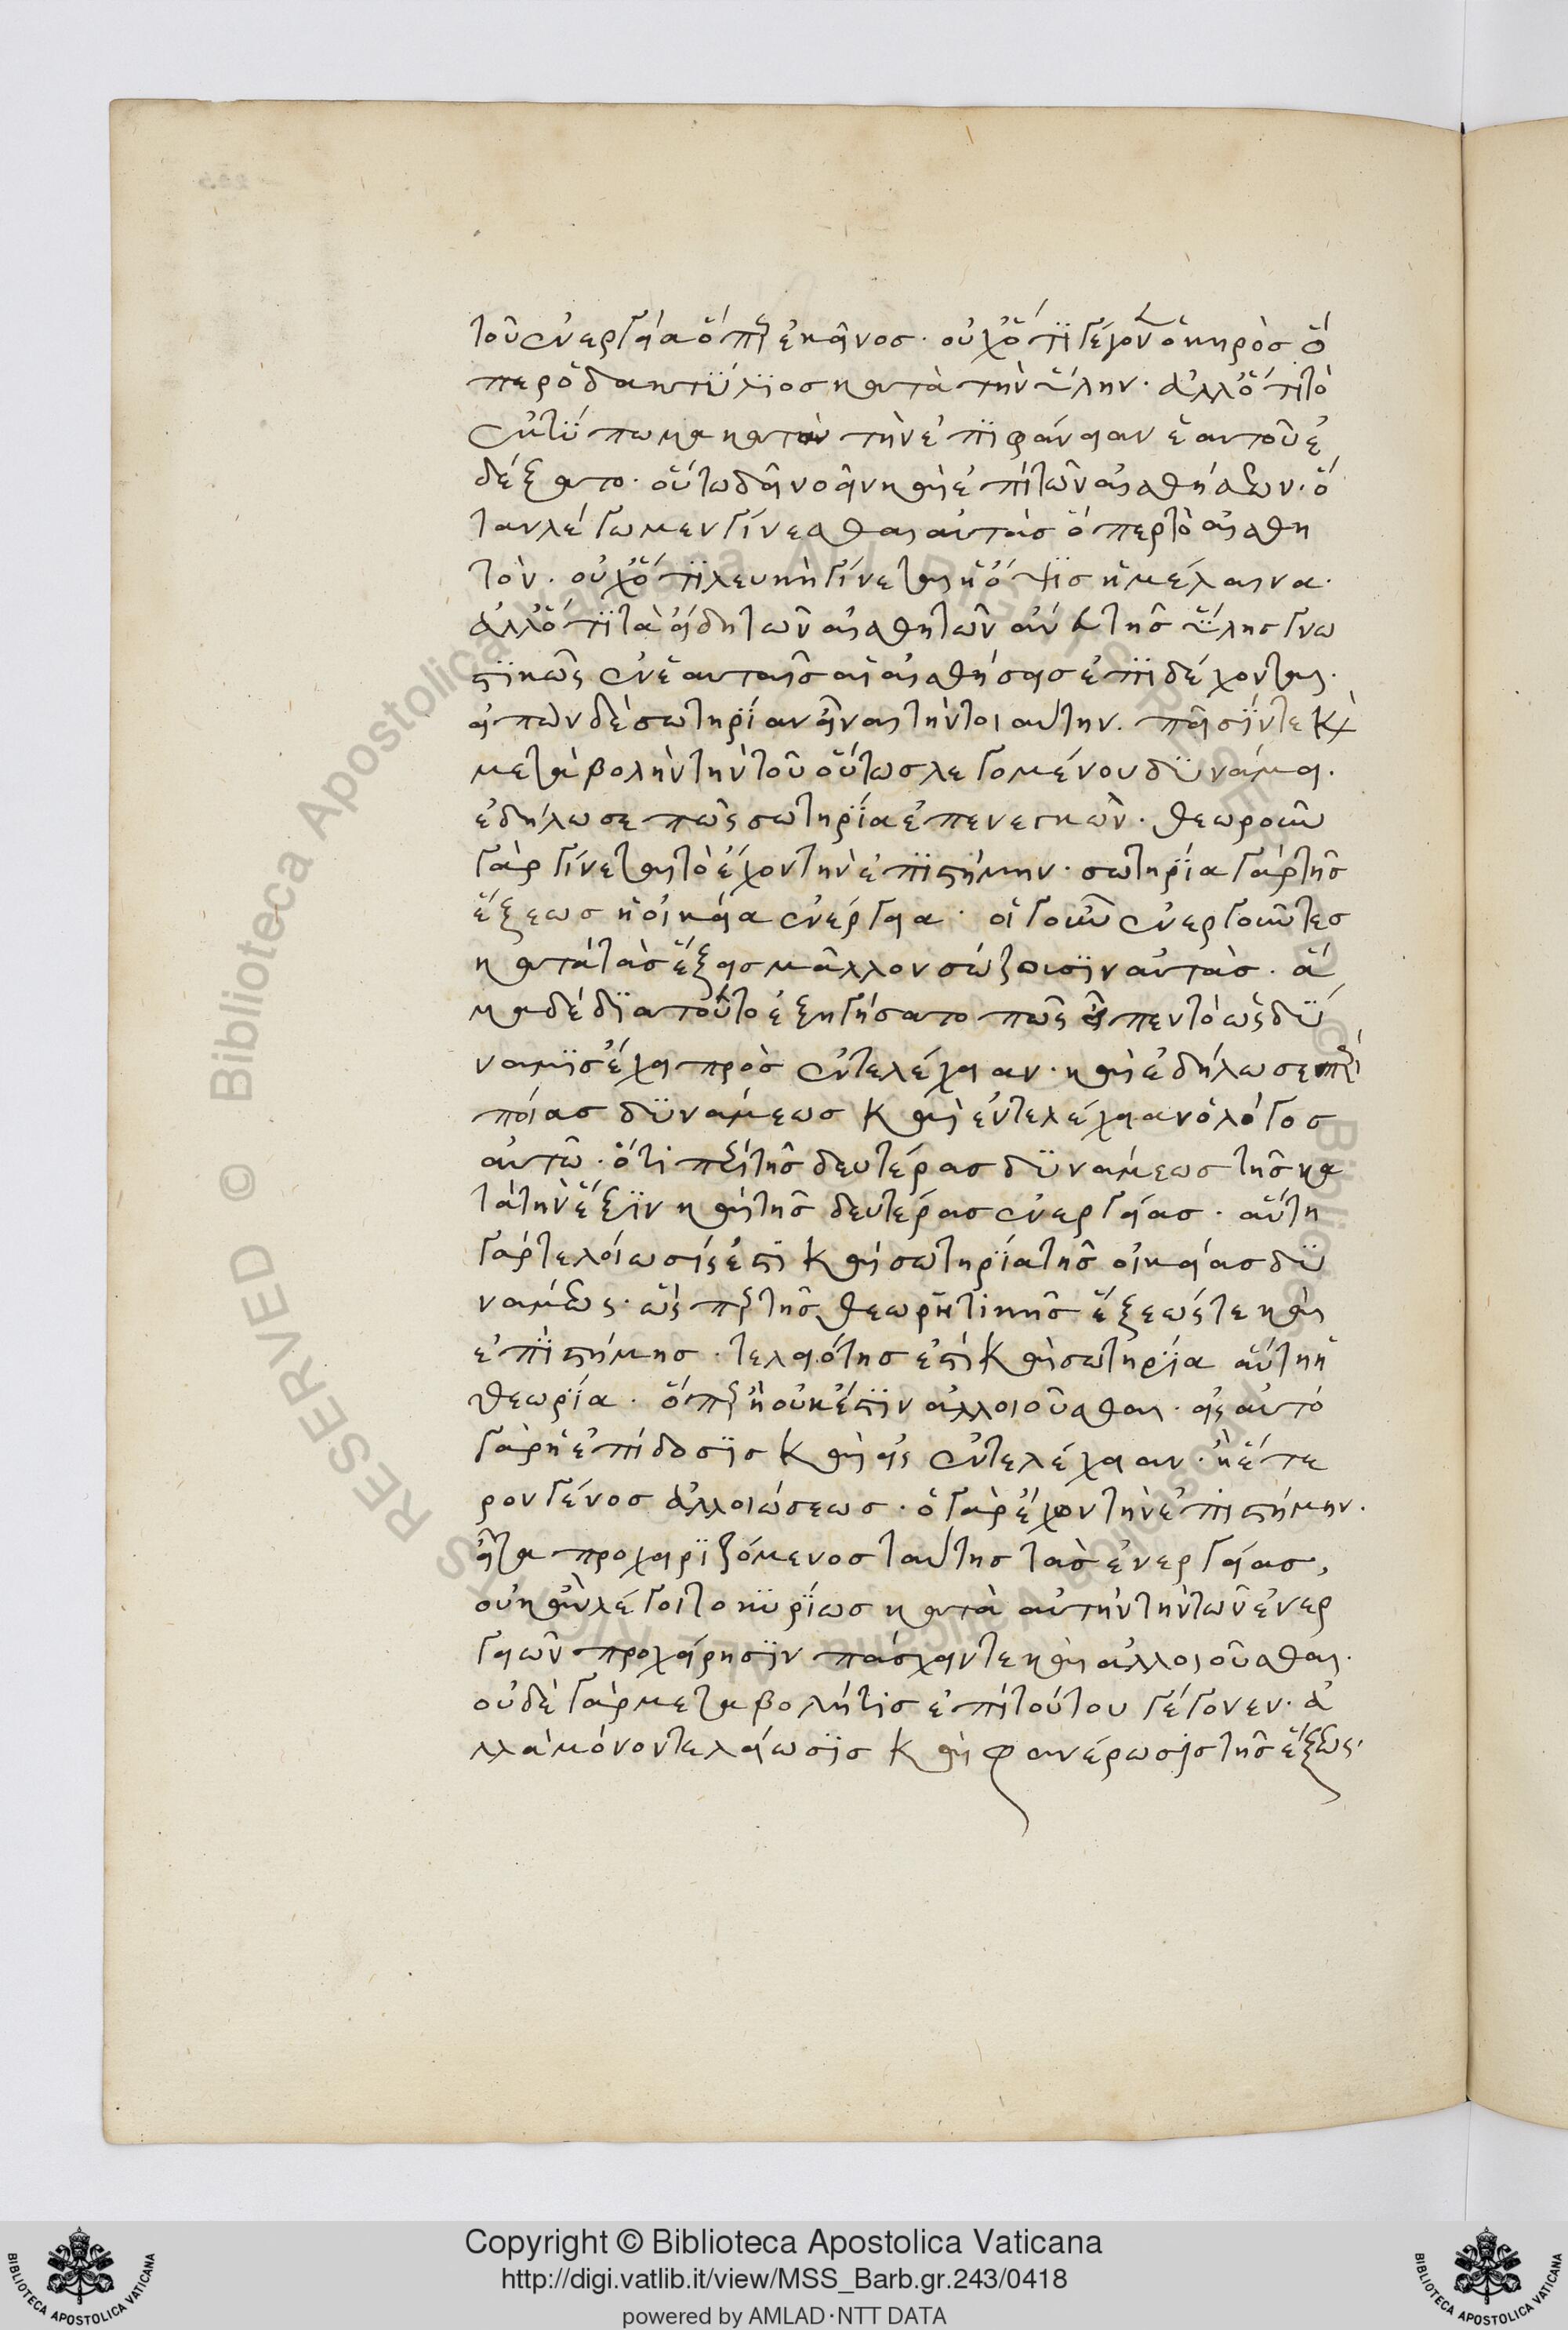 τοῦ ἐνεργεία ὅπερ ἐκεῖνος. οὐχ ὅτι γέγονεν ὁ κηρὸς ὅ
περ ὁ δακτύλιος κατὰ τὴν ὕλην. ἀλλ' ὅτι τὸ
ἐκτύπωμα κατὰ τὴν ἐπιφάνειαν ἑαυτοῦ ἐ
δέξατο. οὕτω δεῖ νοεῖν καὶ ἐπὶ τῶν αἰσθήσεων. ὅ
ταν λέγωμεν γίνεσθαι αὐτὰς ὅπερ τὸ αἰσθη
τόν. οὐχ ὅτι λευκὴ γίνεται ἡ ὄψις ἢ μέλαινα.
ἀλλ' ὅτι τὰ εἴδη τῶν αἰσθητῶν ἄνευ τῆς ὕλης γνω
στικῶς ἐν ἑαυταῖς αἱ αἰσθήσεις ἐπιδέχονται.
εἰπὼν δὲ σωτηρίαν εἶναι τὴν τοιαύτην. πεῖσίν τε καὶ
μεταβολὴν τὴν τοῦ οὕτως λεγομένου δυνάμει.
ἐδήλωσε πῶς σωτηρία ἐπενεγκών. θεωροῦν
γὰρ γίνεται τὸ ἔχον τὴν ἐπιστήμην. σωτηρία γὰρ τῆς
ἕξεως ἡ οἰκεία ἐνέργεια. οἱ γοῦν ἐνεργοῦντες
κατὰ τὰς ἕξεις μᾶλλον σώζουσιν αὐτάς. ἅ
μα δὲ διὰ τοῦτο ἐξηγήσατο πῶς εἶπεν τὸ ὡς δύ
ναμις ἔχει πρὸς ἐντελέχειαν. καὶ ἐδήλωσε περὶ
ποίας δυνάμεως καὶ ἐντελέχειαν ὁ λόγος
αὐτῷ. ὅτι περὶ τῆς δευτέρας δυνάμεως τῆς κα
τὰ τὴν ἕξιν καὶ τῆς δευτέρας ἐνεργείας. αὕτη
γὰρ τελοίωσίς ἐστι καὶ σωτηρία τῆς οἰκείας δυ
νάμεως. ὡς περ τῆς θεωρητικῆς ἕξεώς τε καὶ
ἐπιστήμης. τελειότης ἐστὶ καὶ σωτηρία αὕτη ἡ
θεωρία. ὅπερ ἢ οὐκ ἔστιν ἀλλοιοῦσθαι. εἰς αὐτό
γὰρ ἡ ἐπίδοσις καὶ εἰς ἐντελέχειαν. ἢ ἕτε
ρον γένος ἀλλοιώσεως. ὁ γὰρ ἔχων τὴν ἐπιστήμην.
εἶτα προχειριζόμενος ταύτης τὰς ἐνεργείας,
οὐκ ἂν λέγοιτο κυρίως κατὰ αὐτὴν τὴν τῶν ἐνερ
γειῶν προχείρησιν πάσχειν τε καὶ ἀλλοιοῦσθαι.
οὐδὲ γὰρ μεταβολή τις ἐπὶ τούτου γέγονεν. ἀ
λλὰ μόνον τελείωσις καὶ φανέρωσις τῆς ἕξεως.
Copyright © Biblioteca Apostolica Vaticana
http://digi.vatlib.it/view/MSS_Barb.gr.243/0418
powered by AMLAD·NTT DATA